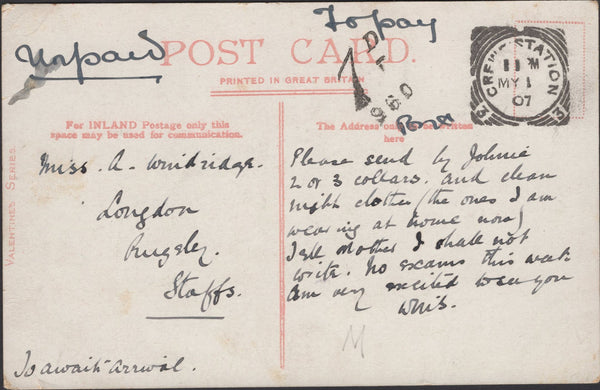 To pay
Unpaid
POST CARD.
PRINTED IN GREAT BRITAIN
CREWE STATION
MY 1
07
For INLAND Postage only this
space may be used for communication.
The Address only to be written
here
VALENTINES SERIES
Miss. A. Windridge.
Longdon
Rugeley.
Staffs.
To await arrival.
Please send by Johnie
2 or 3 collars. and clean
night clothes (the ones I am
wearing at home now)
Tell Mother I shall not
write. No exams this week
Am very excited to see you
M